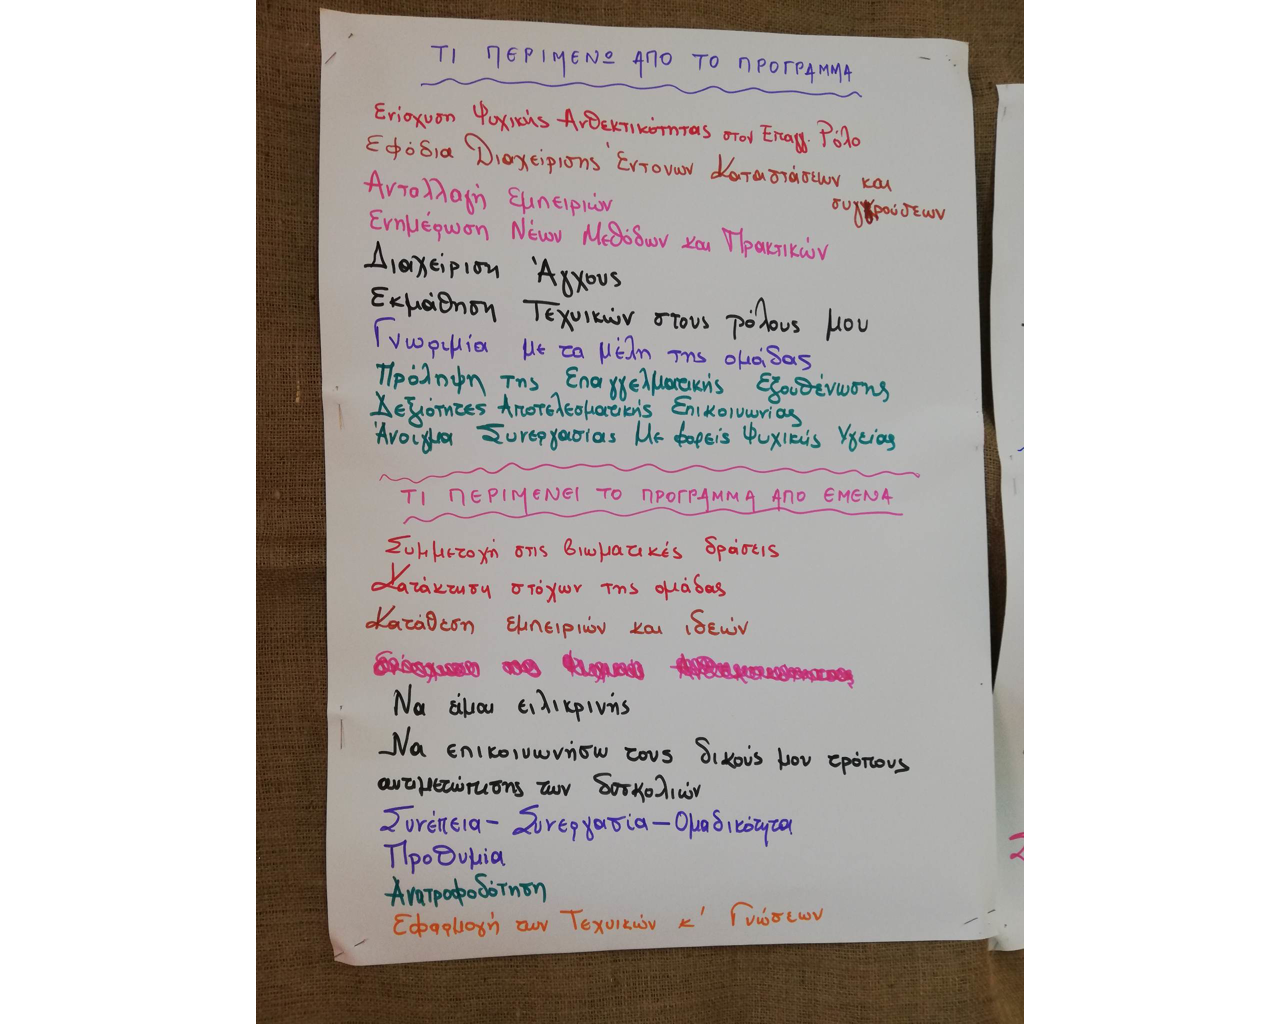 ΤΙ ΠΕΡΙΜΕΝΩ ΑΠΟ ΤΟ ΠΡΟΓΡΑΜΜΑ
Ενίσχυση Ψυχικής Ανθεκτικότητας στον Επαγγ. Ρόλο
Εφόδια Διαχείρισης Έντονων Καταστάσεων και
συγκρούσεων
Ανταλλαγή Εμπειριών
Ενημέρωση Νέων Μεθόδων και Πρακτικών
Διαχείριση Άγχους
Εκμάθηση Τεχνικών στους ρόλους μου
Γνωριμία με τα μέλη της ομάδας
Πρόληψη της Επαγγελματικής Εξουθένωσης
Δεξιότητες Αποτελεσματικής Επικοινωνίας
Άνοιγμα Συνεργασίας Με φορείς Ψυχικής Υγείας
ΤΙ ΠΕΡΙΜΕΝΕΙ ΤΟ ΠΡΟΓΡΑΜΜΑ ΑΠΟ ΕΜΕΝΑ
Συμμετοχή στις βιωματικές δράσεις
Κατάκτηση στόχων της ομάδας
Κατάθεση εμπειριών και ιδεών
Να είμαι ειλικρινής
Να επικοινωνήσω τους δικούς μου τρόπους
αντιμετώπισης των δυσκολιών
Συνέπεια - Συνεργασία - Ομαδικότητα
Προθυμία
Ανατροφοδότηση
Εφαρμογή των Τεχνικών κ' Γνώσεων